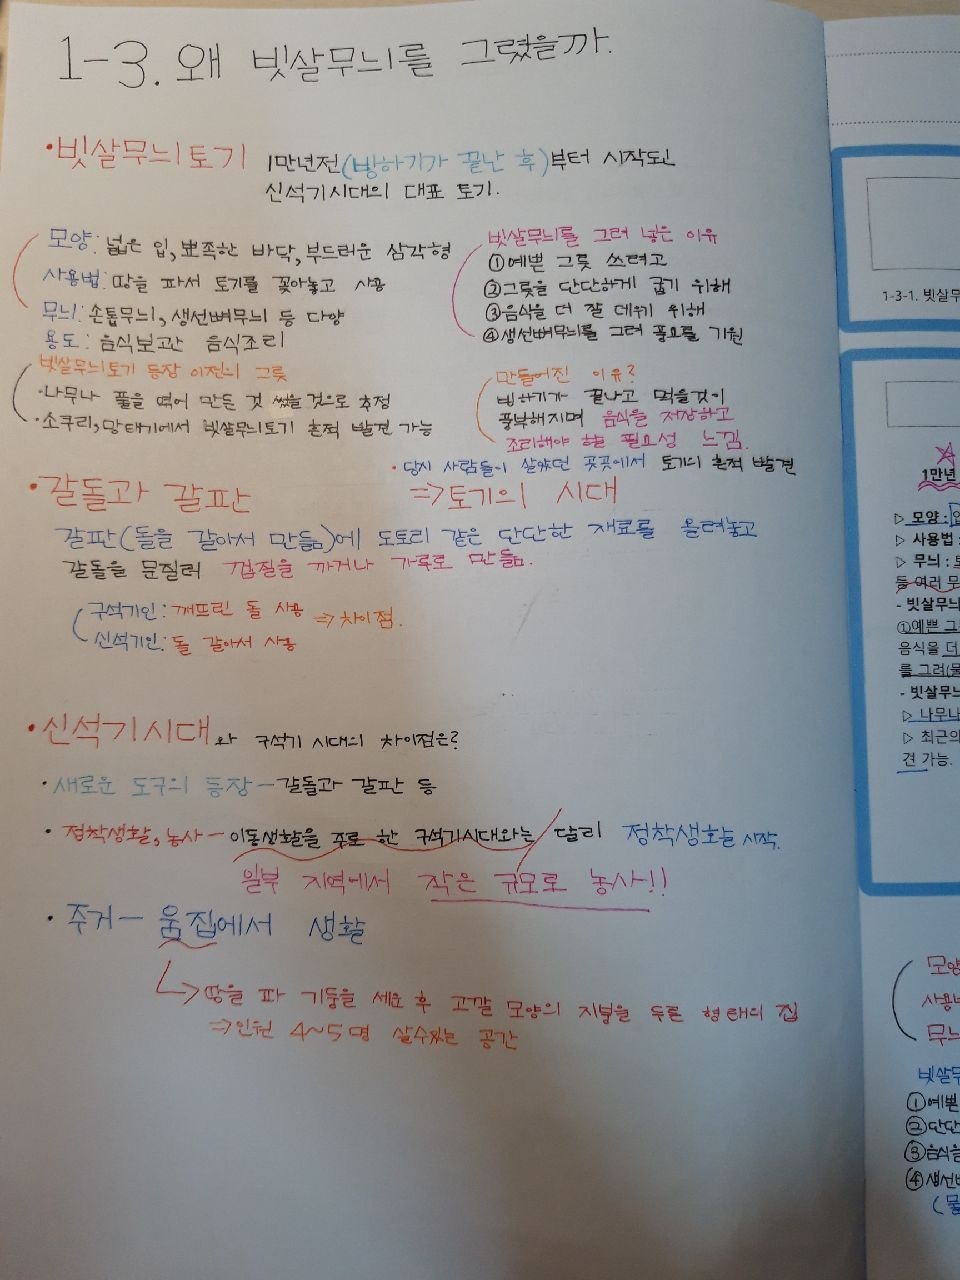 1-3. 왜 빗살무늬를 그렸을까.
·빗살무늬토기 1만년전(빙하기가 끝난 후)부터 시작된
신석기시대의 대표 토기.
모양: 넓은 입, 뾰족한 바닥, 부드러운 삼각형
사용법: 땅을 파서 토기를 꽂아놓고 사용
무늬: 손톱무늬, 생선뼈무늬 등 다양
용도: 음식보관 음식조리
빗살무늬를 그려 넣은 이유
①예쁜 그릇 쓰려고
②그릇을 단단하게 굽기 위해
③음식을 더 잘 데우기 위해
④생선뼈무늬를 그려 풍요를 기원
빗살무늬토기 등장 이전의 그릇
·나무나 풀을 엮어 만든 것 썼을 것으로 추정
·소쿠리, 망태기에서 빗살무늬토기 흔적 발견 가능
만들어진 이유?
빙하기가 끝나고 먹을것이
풍부해지며 음식을 저장하고
조리해야 할 필요성 느낌.
·당시 사람들이 살았던 곳곳에서 토기의 흔적 발견
⇒토기의 시대
·갈돌과 갈판
갈판(돌을 갈아서 만듦)에 도토리 같은 단단한 재료를 올려놓고
갈돌을 문질러 껍질을 까거나 가루로 만듦.
구석기인: 깨뜨린 돌 사용
신석기인: 돌 갈아서 사용
⇒차이점.
·신석기시대와 구석기 시대의 차이점은?
·새로운 도구의 등장 - 갈돌과 갈판 등
·정착생활, 농사 - 이동생활을 주로 한 구석기시대와는 달리 정착생활 시작.
일부 지역에서 작은 규모로 농사!!
·주거 - 움집에서 생활
↳땅을 파 기둥을 세운 후 고깔 모양의 지붕을 두른 형태의 집
⇒인원 4~5명 살수있는 공간
1-3-1. 빗살무
1만년
▷ 모양:
▷ 사용법:
▷ 무늬:
등 여러 무
- 빗살무늬
①예쁜 그
음식을 더
를 그려(물
- 빗살무늬
▷ 나무나
▷ 최근의
견 가능.
모양
사용
무늬
빗살무
①예쁜
②단단
③음식을
④생선뼈
(물